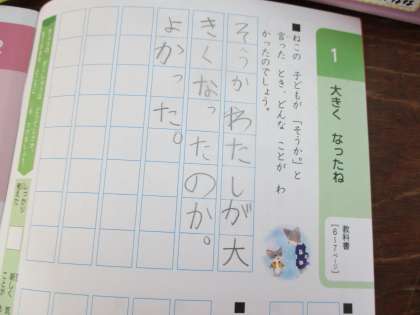 1
大きく なったね
教科書
〔6〜7ページ〕
■ねこの 子どもが 「そうか。」と
言った とき、どんな ことが わ
かったのでしょう。
そうかわたしが大
きくなったのか。
よかった。
しっかり
考えた